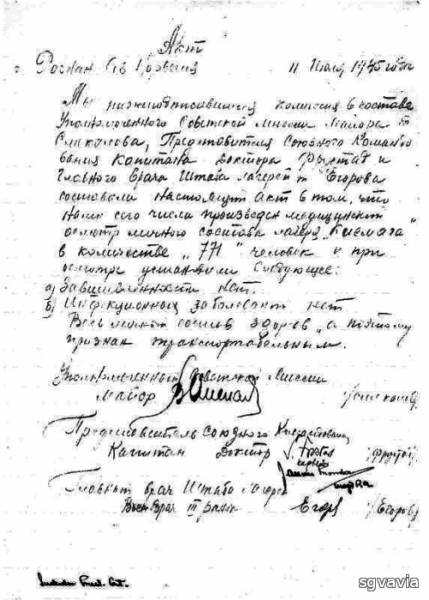 Акт
11 Июля 1945 года
Мы нижеподписавшиеся комиссия в составе
Уполномоченного Советской Миссии Майора т
Представителя Союзного Командо
вания Капитана Доктора Фрустад и
Главного врача Штаба лагерей т Егорова
составили настоящий акт в том, что
нами сего числа произведен медицинский
осмотр личного состава лагеря
в количестве „771" человек и при
осмотре установили следующее:
а) Завшивленности нет.
б) Инфекционных заболеваний нет
Весь личный состав здоров „а поэтому
признан транспортабельным.
Уполномоченный Советской Миссии
Майор
Представитель Союзного Командования
Капитан Доктор
Главный врач Штаба лагерей
Воен Врач Егор (Егоров)
sgvavia